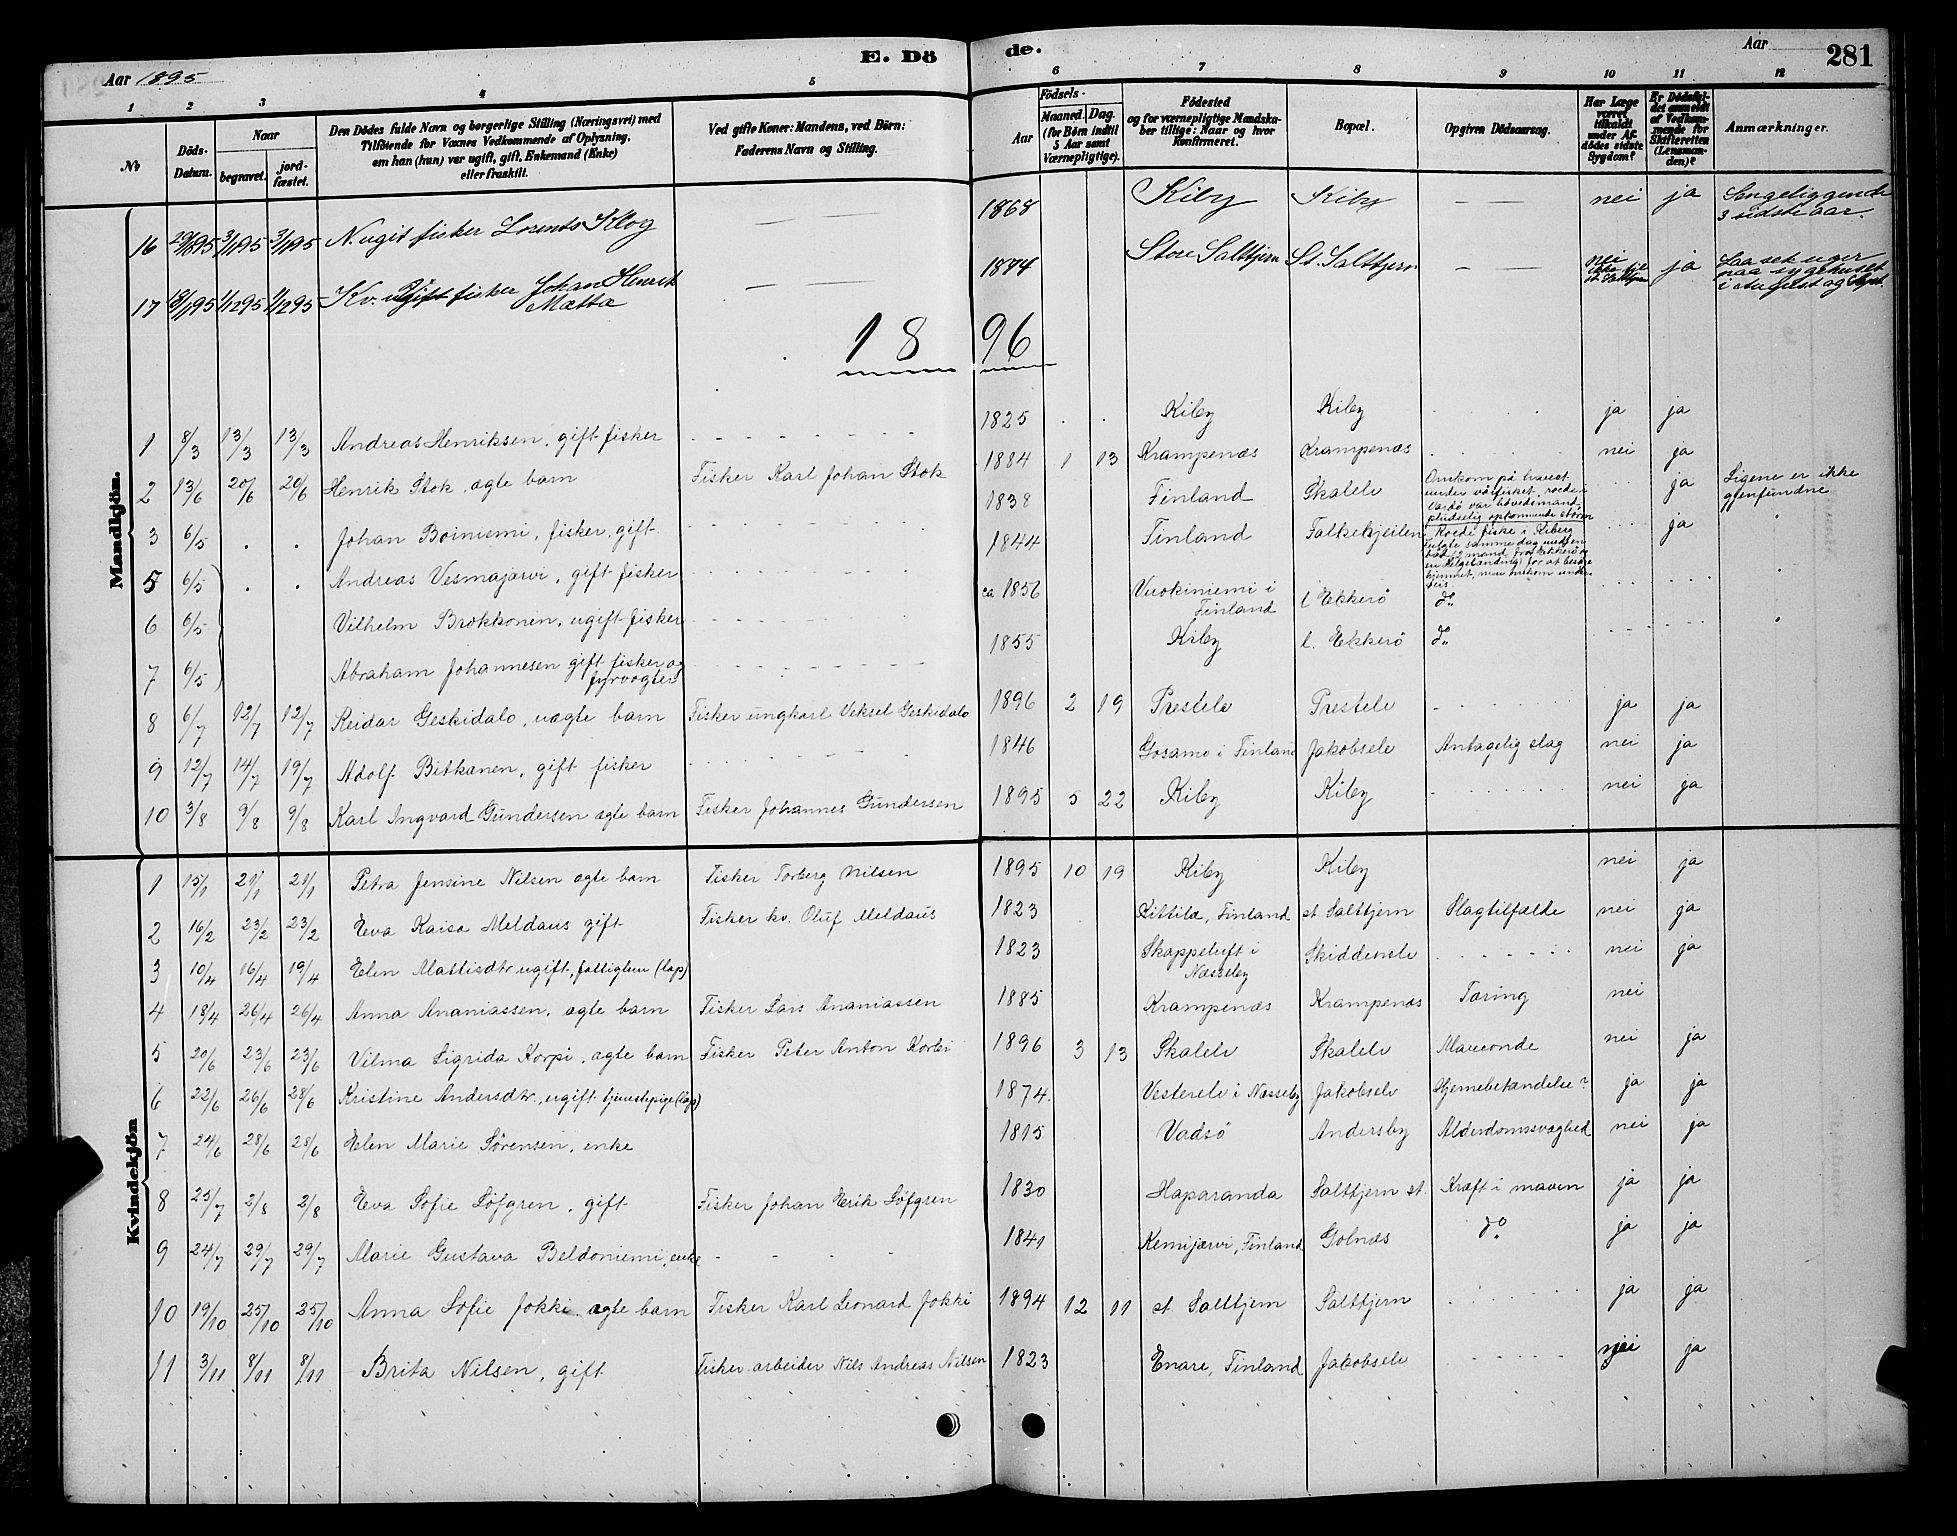 Aar 1895
E. Dö
de.
Aar
281
1 2 3 4 5 6 7 8 9 10 11 12
No
Döds-Datum.
Naar
begravet.
jordfæstet.
Den Dödes fulde Navn og borgerlige Stilling (Næringsvei) med
Tilföiende for Voxnes Vedkommende af Oplysning,
om han (hun) var ugift, gift, Enkemand (Enke)
eller fraskilt.
Ved gifte Koner: Mandens, ved Börn:
Faderens Navn og Stilling.
Födsels-
Aar
Maaned. Dag.
(for Börn indtil
5 Aar samt
Værnepligtige).
Födested
og for værnepligtige Mandska-
ber tillige: Naar og hvor
konfirmeret.
Bopæl.
Opgiven Dödsaarsag.
Har Læge
været
tilkaldt
under Af-
dödes sidste
Sygdom?
Er Dödsfal-
det anmeldt
af Vedkom-
mende for
Skifteretten
(Lensman-
den)?
Anmærkninger.
Mandkjön.
16 3/195 3/195 N. ugit fisker Lorents Klog — — 1868 Kiby Kiby — — nei ja Sengeliggende
3 sidste aar.
17 18/195 1/1295 1/1295 Kv. ugift fisker Johan Henrik
Matta — — 1874 Store Saltbjern St. Saltbjern — — nei ja Laa sex uger
paa sygehuset
i August og Sept.
1896
1 8/3 13/3 13/3 Andreas Henriksen, gift fisker 1825 Kiby Kiby ja ja
2 13/6 20/6 20/6 Henrik Stok, ægte barn Fisker Karl Johan Stok 1884 1 13 Krampenæs Krampenæs nei ja
3 6/5 Johan Boiniemi, fisker, gift 1838 Finland Skalelv Omkom på havet
under vårfisket, roede i
Vardö var hövedsmand,
pludselig optommende storm ja Ligene er ikke
gjenfundne
5 6/5 Andreas Vesmajarvi, gift fisker 1844 Finland Falkekjeilen Roede fiske i Kiberg
fulgte samme dag med en
båd ja
6 6/5 Vilhelm Brokkonen, ugift fisker ca 1856 Vuokiniemi i
Finland l. Ekkerö do
7 6/5 Abraham Johannesen gift fisker og
fyrvogter 1855 Kiby l. Ekkerö do
8 6/7 12/7 12/7 Reidar Geskidalo, uægte barn Fisker ungkarl Veksel Geskidalo 1896 2 19 Prestelv Prestelv ja ja
9 12/7 14/7 19/7 Adolf Bitkanen, gift fisker 1846 Gosamo i Finland Jakobselv Antagelig slag nei ja
10 3/8 9/8 9/8 Karl Ingvard Gundersen ægte barn Fisker Johannes Gundersen 1895 5 22 Kiby Kiby nei ja
Kvindekjön
1 15/1 21/1 21/1 Petra Jensine Nilsen ægte barn Fisker Torberg Nilsen 1895 10 19 Kiby Kiby nei ja
2 16/2 23/2 23/2 Eva Kaisa Meldaus gift Fisker kv. Oluf Meldaus 1823 Kittilæ, Finland st. Saltbjern Slagtilfælde nei ja
3 10/4 16/4 19/4 Elen Mattisdtr ugift, fattiglem (lap) 1823 Skappeluft i
Næsseby Skiddenelv nei ja
4 18/4 26/4 26/4 Anna Ananiassen, ægte barn Fisker Lars Ananiassen 1885 Krampenæs Krampenæs Tæring nei
5 20/6 23/6 23/6 Vilma Sigrida Korpi, ægte barn Fisker Peter Anton Korbi 1896 3 13 Skalelv Skalelv Maveonde nei ja
6 22/6 26/6 28/6 Kristine Andersdtr, ugift tjenestepige (lap) 1874. Vesterelv i Næsseby Jakobselv Hjernebetændelse? ja ja
7 24/6 28/6 28/6 Elen Marie Sørensen, enke 1815 Vadsö Andersby Alderdomssvaghed nei ja
8 25/7 2/8 2/8 Eva Sofie Løfgren, gift Fisker Johan Erik Løfgren 1830 Haparanda Saltbjern st. Kræft i maven ja ja
9 24/7 29/7 29/7 Marie Gustava Beldoniemi, enke 1841 Kemijærvi, Finland Golnæs do ja ja
10 19/10 25/10 25/10 Anna Sofie Jokki ægte barn Fisker Karl Leonard Jokki 1894 12 11 st. Saltbjern Saltbjern ja ja
11 3/11 8/11 8/11 Brita Nilsen, gift Fisker arbeider Nils Andreas Nilsen 1823 Enare, Finland Jakobselv nei ja